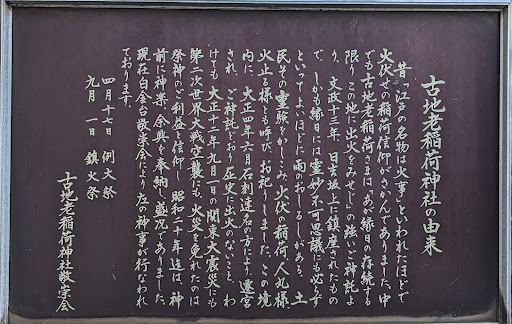 古地老稲荷神社の由来
昔「江戸の名物は火事」といわれたほどで
火伏せの稲荷信仰がさかんでありました。中
でも古地老稲荷さまは「あが縁日の存続する
限りこの地に出火をみせじ」の強いご神託よ
り、文政十三年 日吉坂上に鎮座されたもの
で、しかも縁日には霊妙不可思議にも必らず
といってよいほどに雨のおしるしがある。土
民その霊験をかしこみ、火伏の稲荷、人丸様、
火止る様とも呼び、お祀りしました。この境
内に、大正四年六月石刻連名の方により、遷宮
され、ご神託どおり歴史に出火のないこと、わ
けても大正十二年九月一日の関東大震災にも
第二次世界大戦空襲にも火災を免れたのは
祭神のご利益と信仰し 昭和二十年迄は、神
前に神楽、余興を奉納し盛況でありました。
現在白金台敬崇会により左の神事が行なわれ
ております。
四月十七日 例大祭
九月 一日 鎮火祭
古地老稲荷神社敬崇会